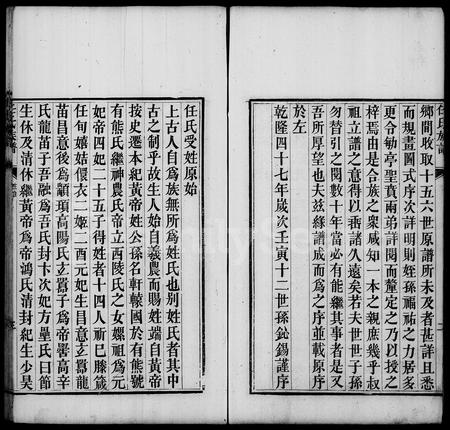 鄉間收取十五六世原譜所未及者甚詳且悉
而規畫圖式序次詳明則姪孫福祐之力居多
更令
亭聖賁兩弟詳閱而釐定之乃以授之
梓焉由是合族之衆咸知一本之親庶幾乎叔
祖立譜之意得以垂諸久遠矣若夫世世子孫
勿替引之閱數十年當必有能繼其事者是又
吾所厚望也夫茲緣譜成而爲之序並載原序
於左
乾隆四十七年歲次壬寅十二世孫鈊錫謹序
任氏族譜
二
任氏受姓原始
上古人自爲族無所爲姓氏也別姓氏者其中
古之制乎故生人始自羲農而賜姓端自黃帝
按史遷本紀黃帝姓公孫名軒轅國於有熊號
有熊氏繼神農氏帝立西陵氏之女嫘祖爲元
妃帝四妃二十五子得姓者十四人祈巳滕葴
任旬嬉姞儇衣二姬二酉元妃生昌意玄嚣龍
苗昌意後爲顓頊高陽氏玄嚣子爲帝嚳高辛
氏龍苗子吾融爲吾氏封卞次妃方壘氏曰節
生休及清休繼黃帝爲帝鴻氏清封紀生少昊